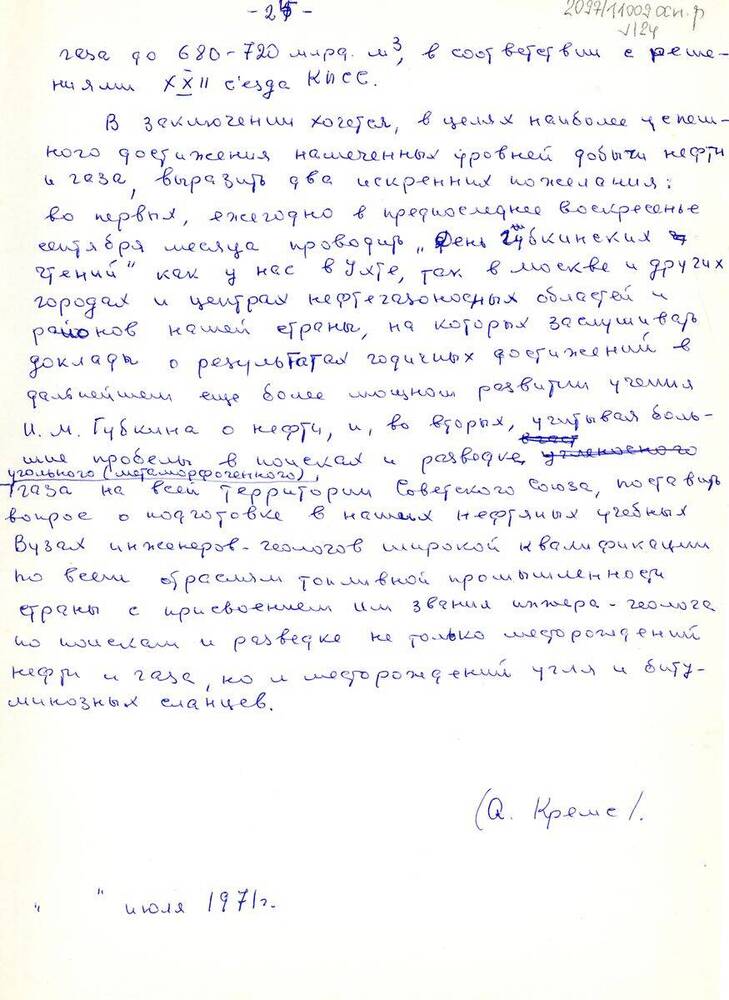 - 25 -
2097/11009 осн. р
л/24
газа до 680-720 млрд. м³, в соответствии с реше-
ниями XXII с'езда КПСС.
В заключении хочется, в целях наиболее успеш-
ного достижения намеченных уровней добычи нефти
и газа, выразить два искренних пожелания:
во первых, ежегодно в предпоследнее воскресенье
сентября месяца проводить „День Губкинских
чтений" как у нас в Ухте, так в москве и других
городах и центрах нефтегазоносных областей и
районов нашей страны, на которых заслушивать
доклады о результатах годичных достижений в
дальнейшем еще более мощном развитии учения
И.М. Губкина о нефти, и, во вторых, учитывая боль-
шие пробелы в поисках и разведке
угольного (метаморфогенного),
газа на всей территории Советского Союза, поставить
вопрос о подготовке в наших нефтяных учебных
Вузах инженеров-геологов широкой квалификации
по всем отраслям топливной промышленности
страны с присвоением им звания инжера-геолога
по поискам и разведке не только месторождений
нефти и газа, но и месторождений угля и биту-
минозных сланцев.
(А. Кремс/.
„ " июля 1971г.